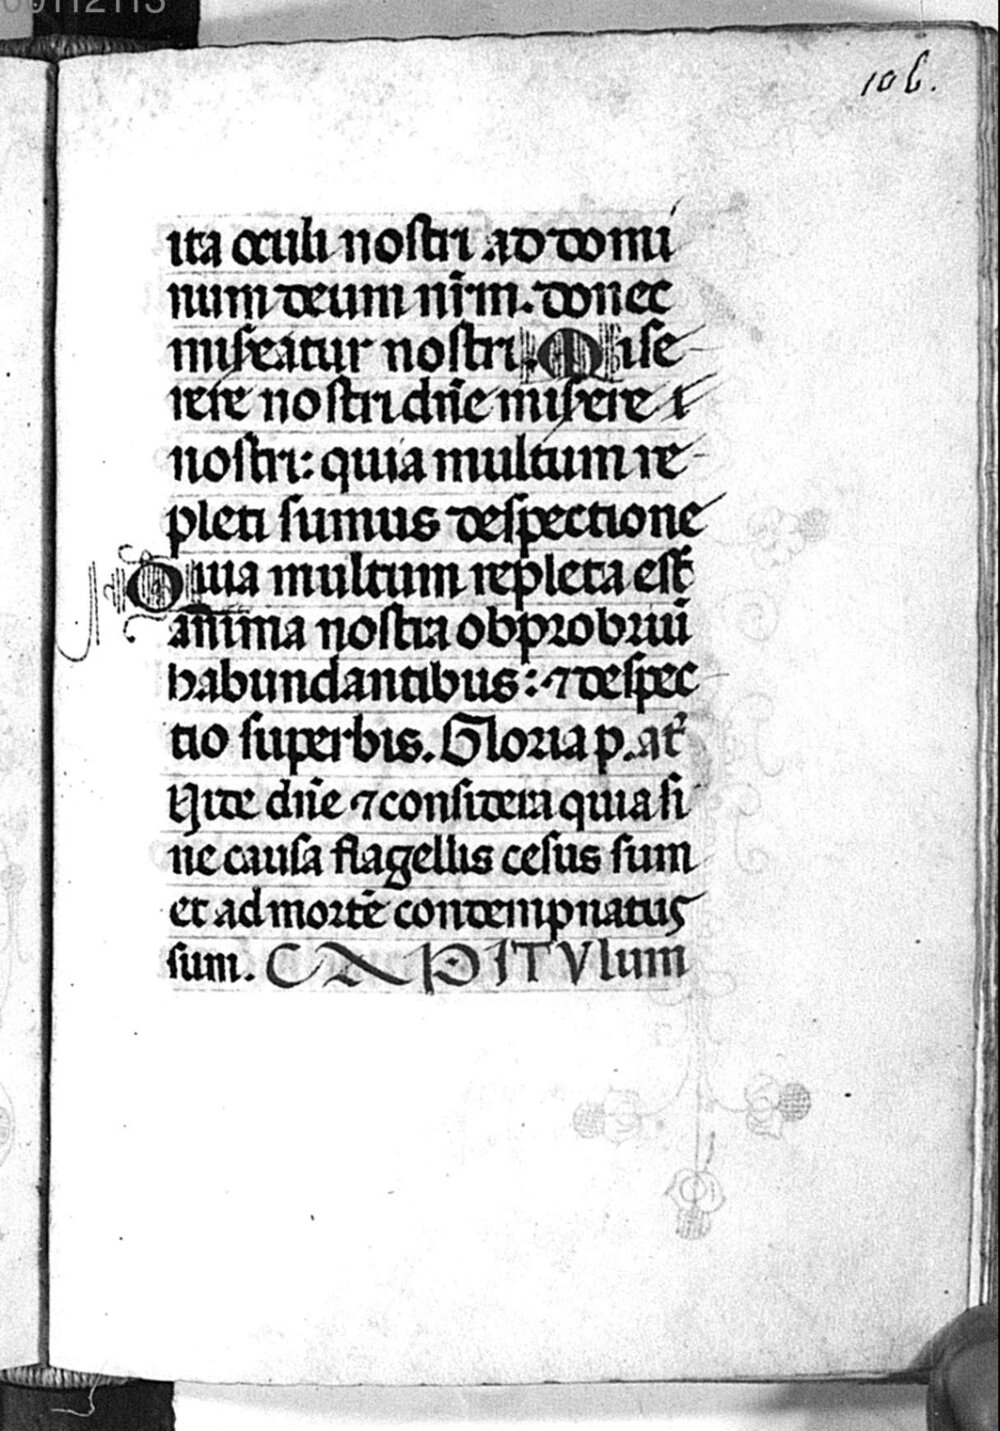 00112113
106.
ita oculi nostri ad domi
num deum nr̄m. donec
misereatur nostri. Mise
rere nostri dn̄e miserere
nostri: quia multum re
pleti sumus despectione
Quia multum repleta est
anima nostra obprobriū
habundantibus: ⁊ despec
tio superbis. Gloria p. at̄
dn̄e ⁊ considera quia si
ne causa flagellis cesus sum
et ad mortē contempnatus
sum. CAPITVlum